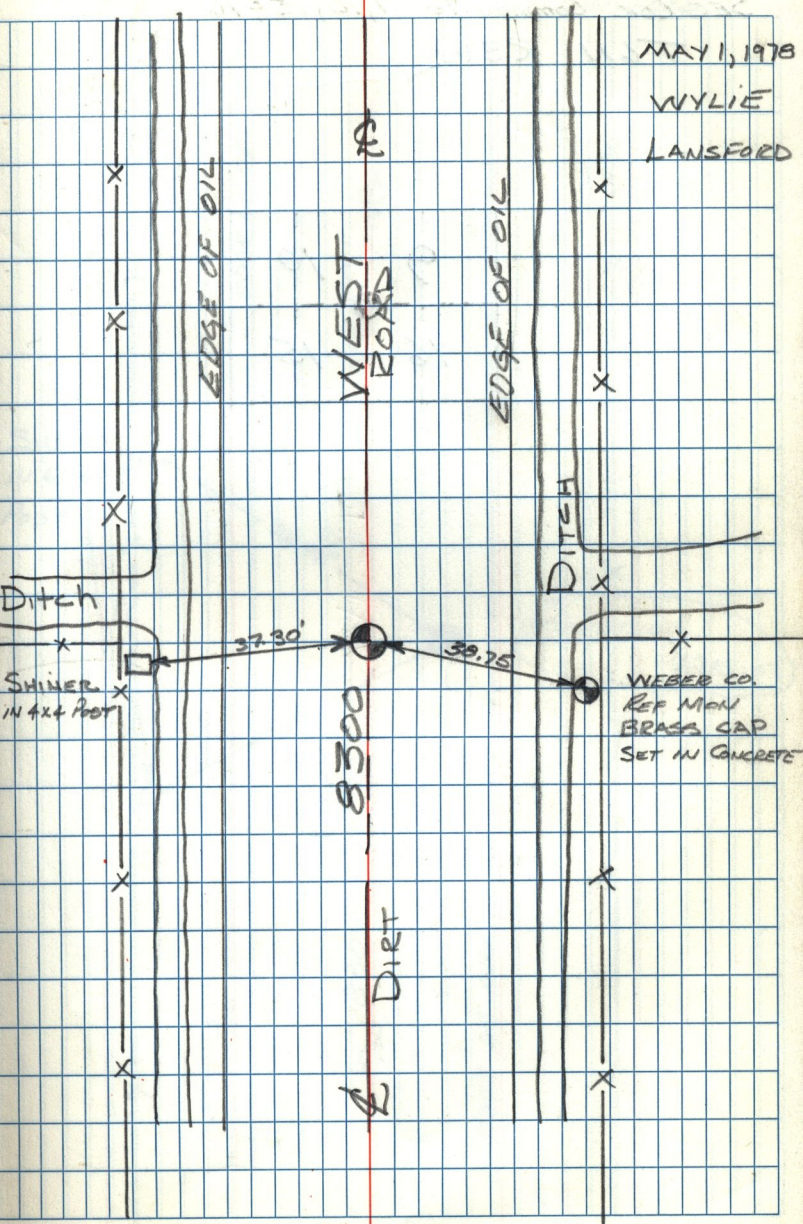 MAY 1, 1978
WYLIE
LANSFORD
℄
EDGE OF OIL
WEST
ROAD
EDGE OF OIL
DITCH
Ditch
37.30'
38.75
SHINER
IN 4X4 POST
WEBER CO.
REF MON
BRASS CAP
SET IN CONCRETE
8300
DIRT
℄